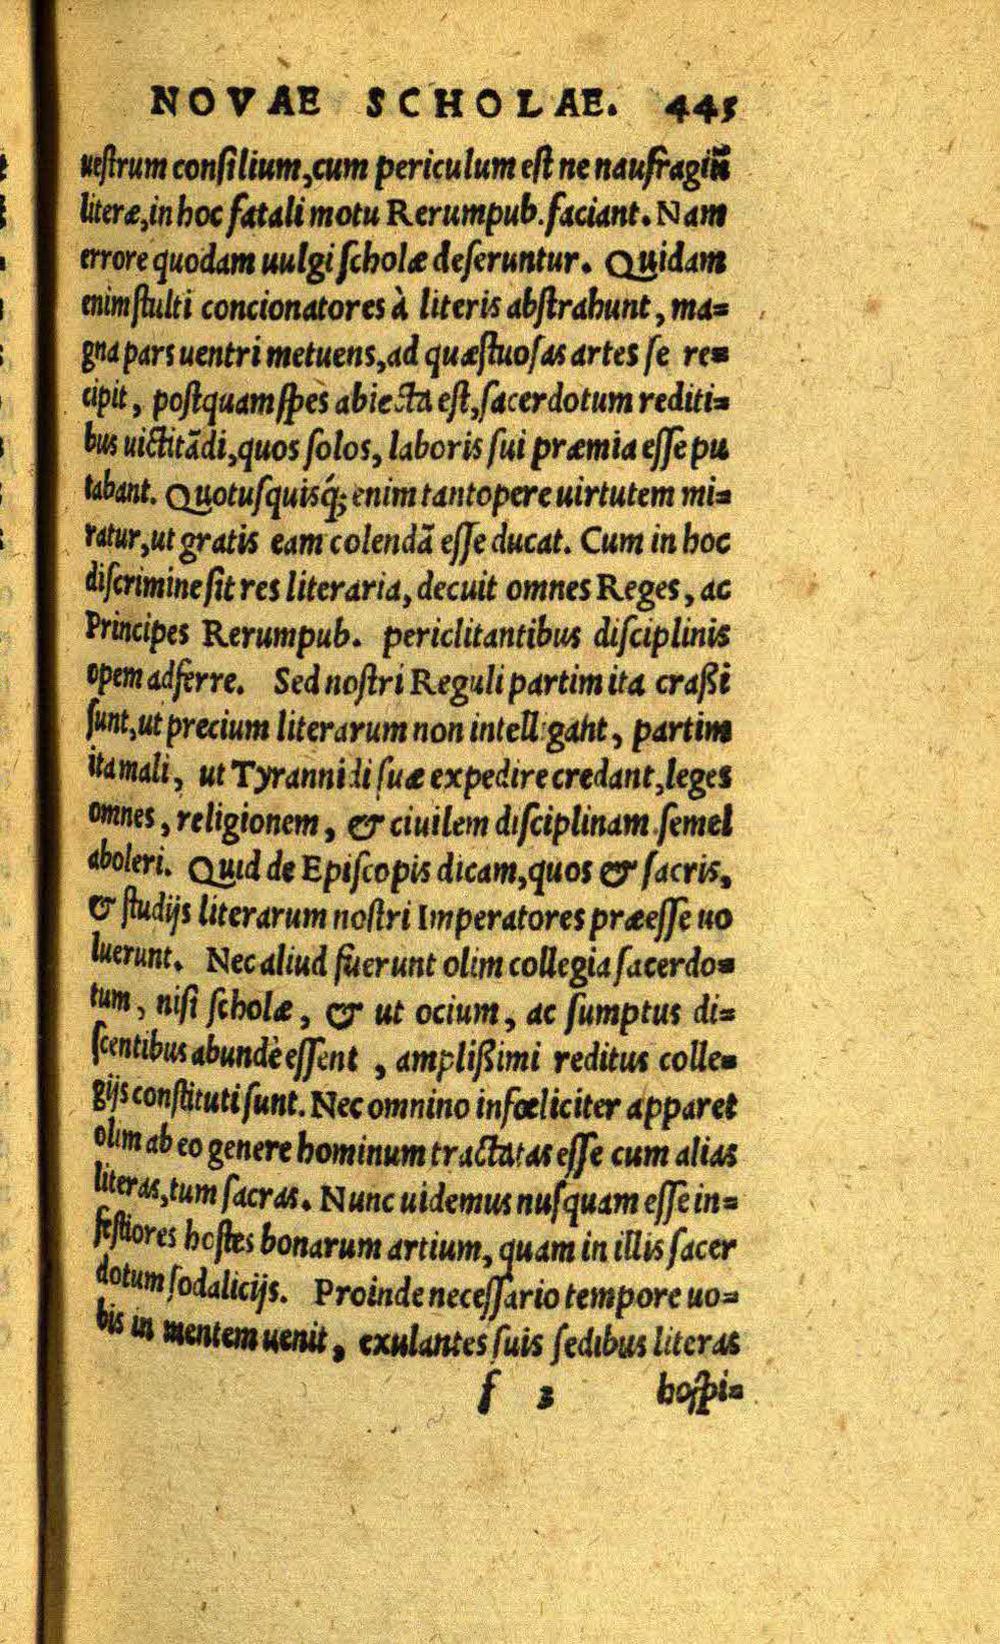 NOVAE SCHOLAE. 445
uestrum consilium, cum periculum est ne naufragiũ
literæ, in hoc fatali motu Rerumpub. faciant. Nam
errore quodam uulgi scholæ deseruntur. Quidam
enim stulti concionatores à literis abstrahunt, ma=
gna pars uentri metuens, ad quæstuosas artes se re=
cipit, postquam spes abiecta est, sacerdotum rediti=
bus uictitãdi, quos solos, laboris sui præmia esse pu
tabant. Quotusquisq́; enim tantopere uirtutem mi=
ratur, ut gratis eam colendã esse ducat. Cum in hoc
discrimine sit res literaria, decuit omnes Reges, ac
Principes Rerumpub. periclitantibus disciplinis
opem adferre. Sed nostri Reguli partim ita craßi
sunt, ut precium literarum non intelligant, partim
ita mali, ut Tyrannidi suæ expedire credant, leges
omnes, religionem, & ciuilem disciplinam semel
aboleri. Quid de Episcopis dicam, quos & sacris,
& studijs literarum nostri Imperatores præesse uo
luerunt. Nec aliud fuerunt olim collegia sacerdo=
tum, nisi scholæ, & ut ocium, ac sumptus di=
scentibus abundè essent, amplißimi reditus colle=
gijs constituti sunt. Nec omnino infœliciter apparet
olim ab eo genere hominum tractatas esse cum alias
literas, tum sacras. Nunc uidemus nusquam esse in=
festiores hostes bonarum artium, quam in illis sacer
dotum sodalicijs. Proinde necessario tempore uo=
bis in mentem uenit, exulantes suis sedibus literas
f 3 hospi=